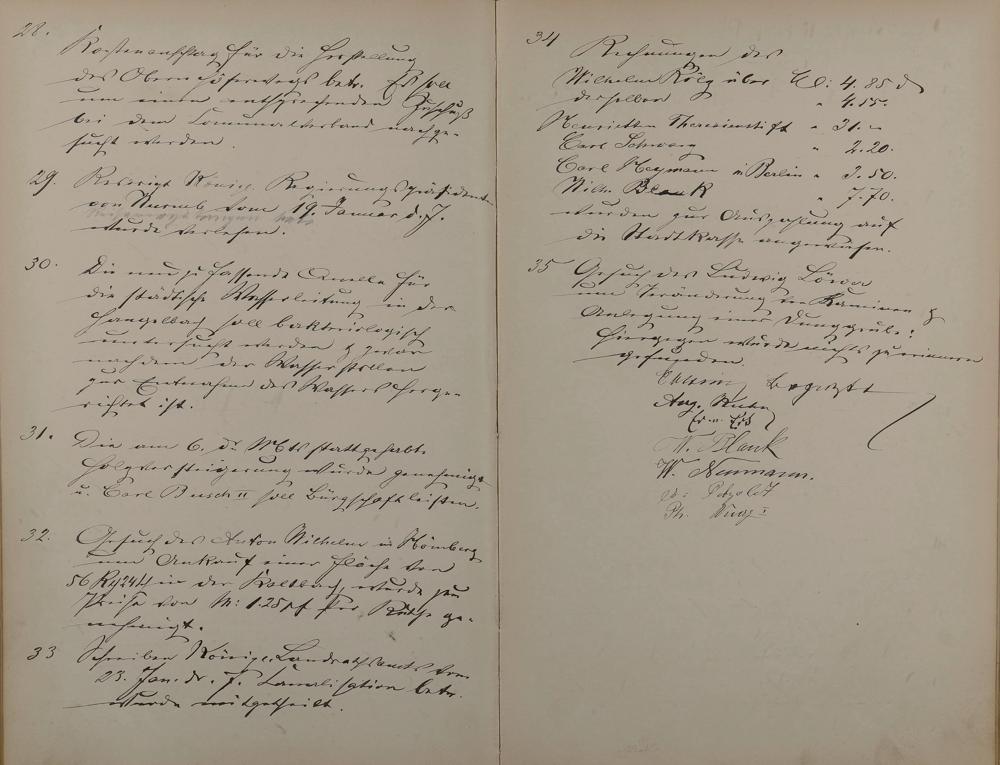 28.
Kostenanschlag für die Herstellung
des Obern Höferwegs betr. Es soll
um einen entsprechenden Zuschuß
bei dem Communalverband nachge-
sucht werden.
29. Rescript Königl. Regierungspräsidenten
von vom 19. Januar d. J.
wurde verlesen.
30. Die neu zu fassende Quelle für
die städtische Wasserleitung in der
Hangelbach soll bakteriologisch
untersucht werden & zwar
nachdem der Wasser
zur Entnahme des Wassers herge-
richtet ist.
31. Die am 6. ds. Mts stattgehabte
Holzversteigerung wurde genehmigt
u. Carl Busch II soll Bürgschaft leisten.
32. Gesuch des Anton Wilhelm in Hömberg
um Ankauf einer Fläche von
56 in der Kaltbach wurde zum
Preise von M: 1.25 pf per Ruthe ge-
nehmigt.
33 Schreiben Königl. Landrathsamts vom
23. Jan. ds. J. Canalisation betr.
wurde mitgetheilt.
34 Rechnungen des
Wilhelm über M: 4.85 d
derselben " 4.55.
Henrietten Theresienstift " 31.-
Carl Schwarz " 2.20.
Carl Heymann in Berlin " 3.50.
Wilh. Blank " 7.70.
wurden zur Auszahlung auf
die Stadtkasse angewiesen.
35 Gesuch des Ludwig Löwen
um Veränderung von Kaminen &
Anlegung einer Dunggrube:
Hiergegen wurde nichts zu erinnern
gefunden.
W. Blank
W. Neumann.
Petzoldt
Ph.